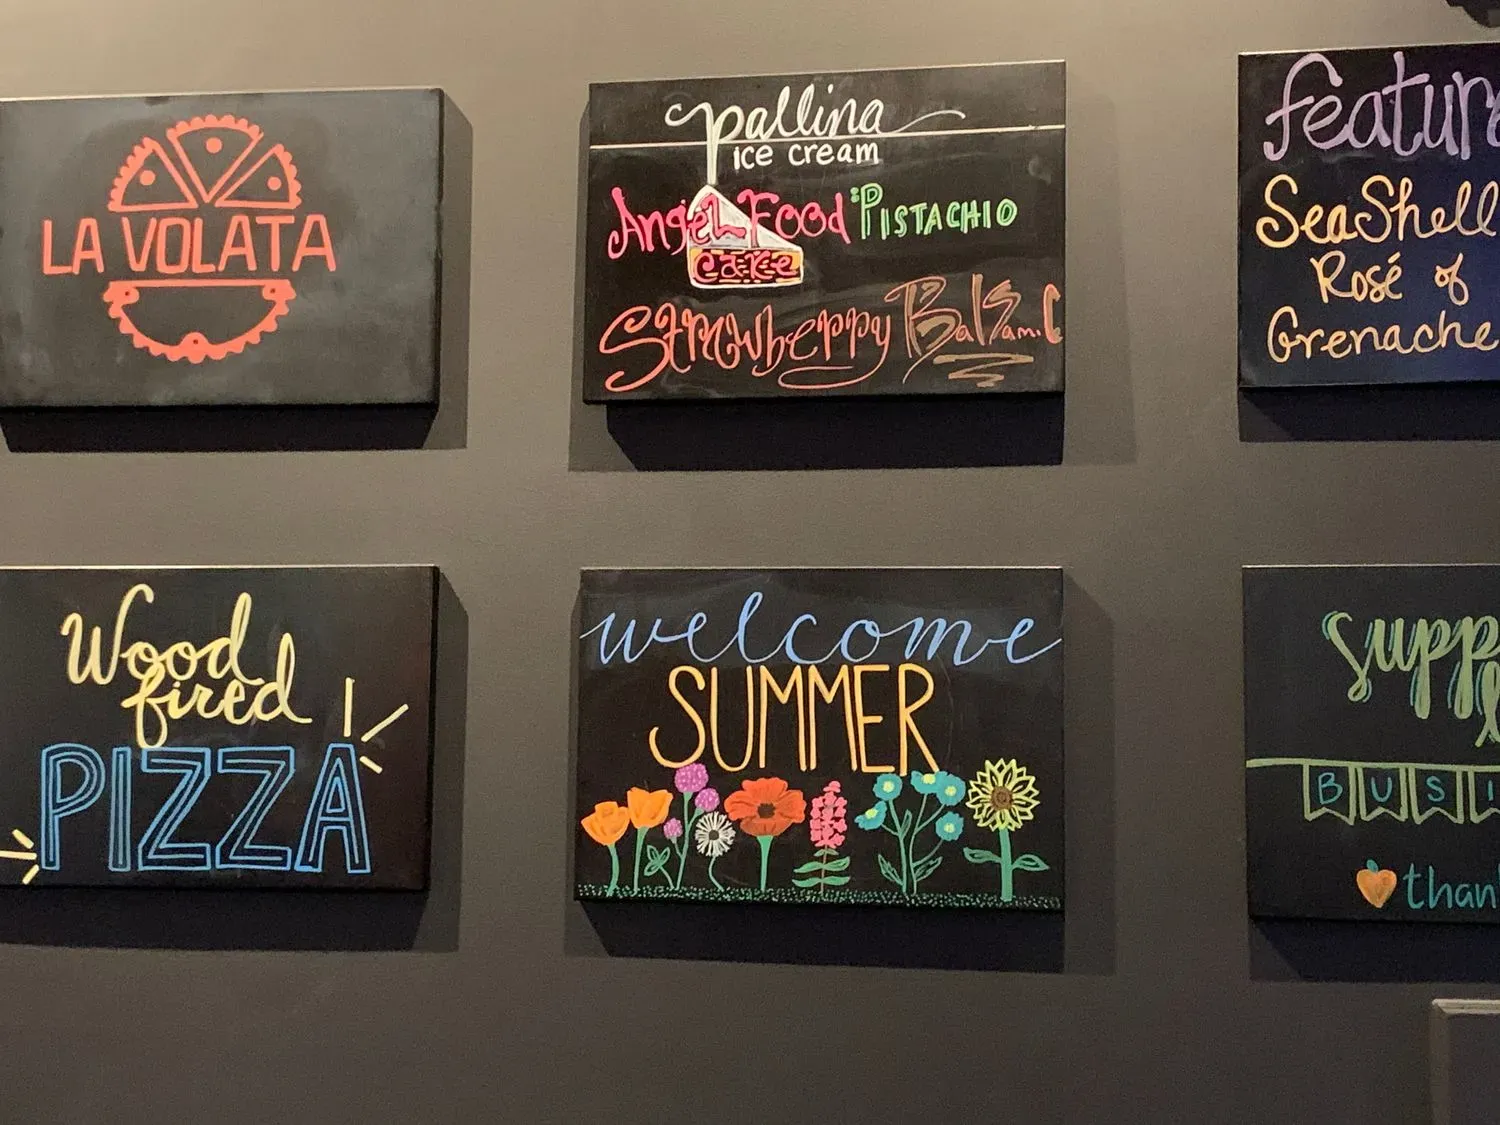 LA VOLATA
pallina
ice cream
Angel Food
Cake
PISTACHIO
Strawberry Balsamic
SeaShell
Rosé of
Grenache
Wood
fired
PIZZA
welcome
SUMMER